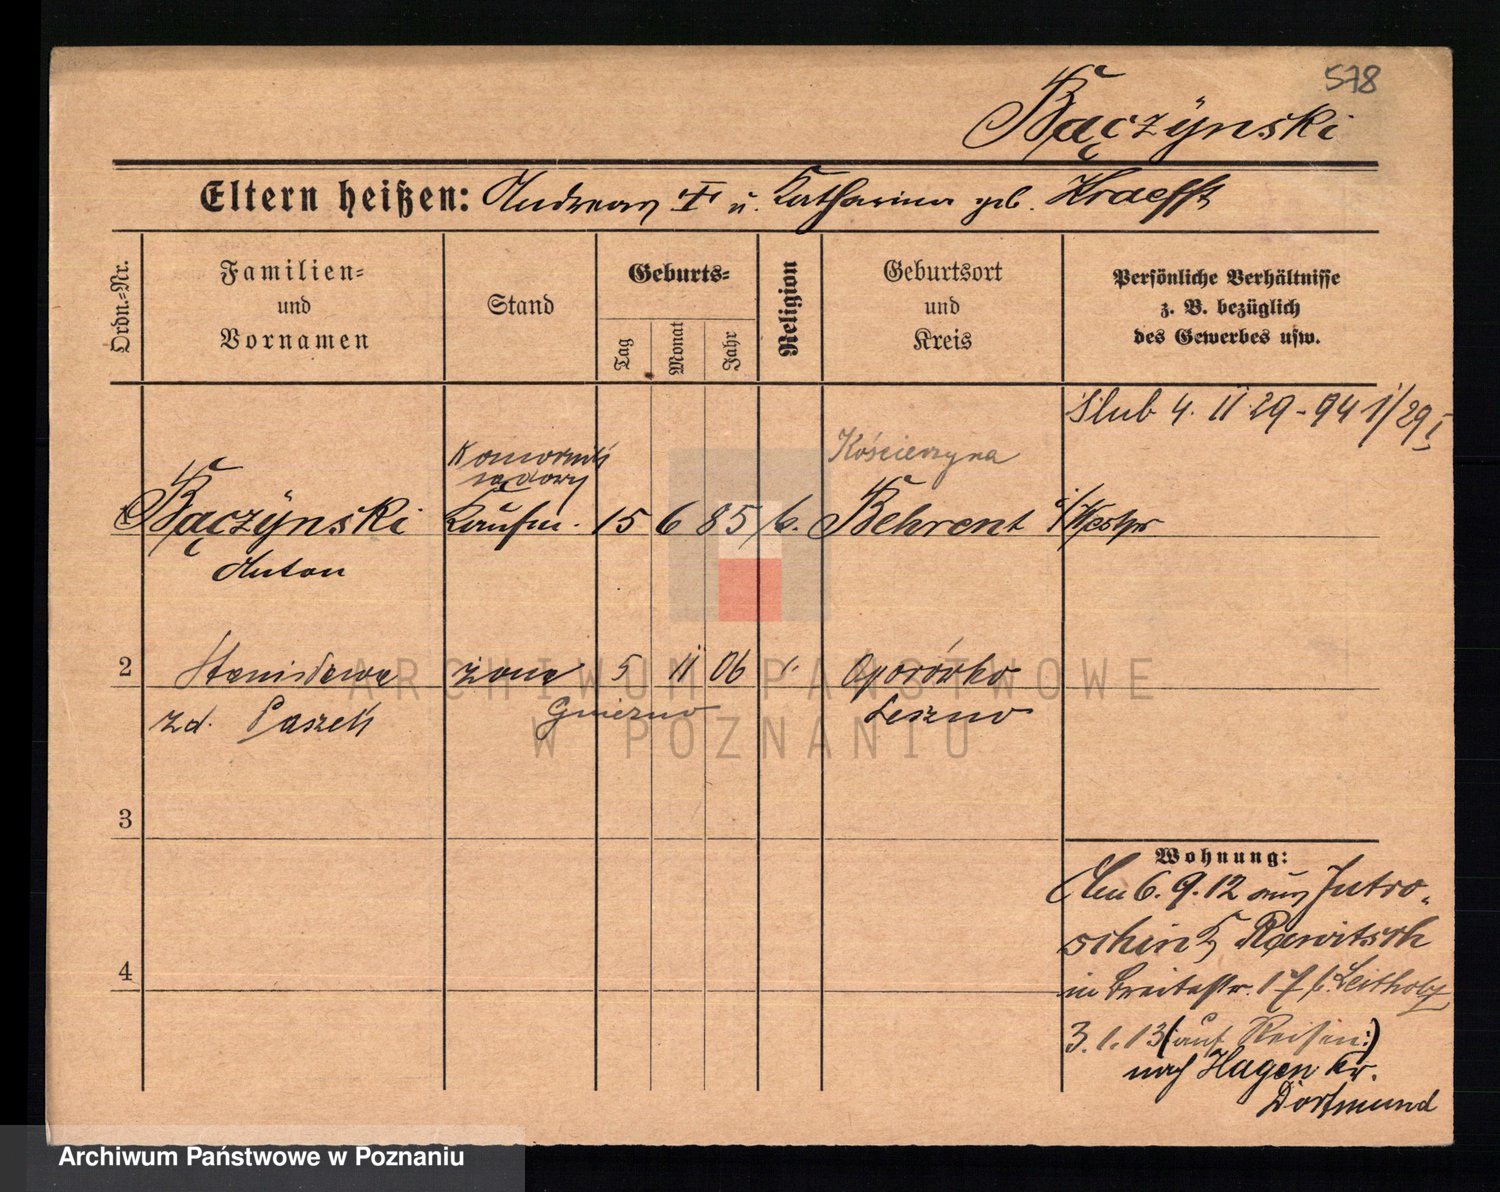 578
Bączÿnski
Eltern heißen: Andreas u. Katharina geb. Kraefft
Ordn.=Nr.
Familien=
und
Vornamen
Stand
Geburts=
Tag
Monat
Jahr
Religion
Geburtsort
und
Kreis
Persönliche Verhältnisse
z. B. bezüglich
des Gewerbes usw.
Ślub 4. 11 29 - 94
Komornik
sądowy
Kościerzyna
1 Bączÿnski Kaufm. 15 6 85 k. Behrent i/Westpr
Anton
2 Stanisława żona 5 11 06 k. Oporówko
zd. Paszek Gniezno Leszno
3
4
Wohnung:
Am 6.9.12 aus Jutro-
schin Kr Rawitsch
in Breitestr. 17 b. Leitholz
3.1.13 (auf Reisen:)
nach Hagen Kr.
Dortmund
ARCHIWUM PAŃSTWOWE
W POZNANIU
Archiwum Państwowe w Poznaniu